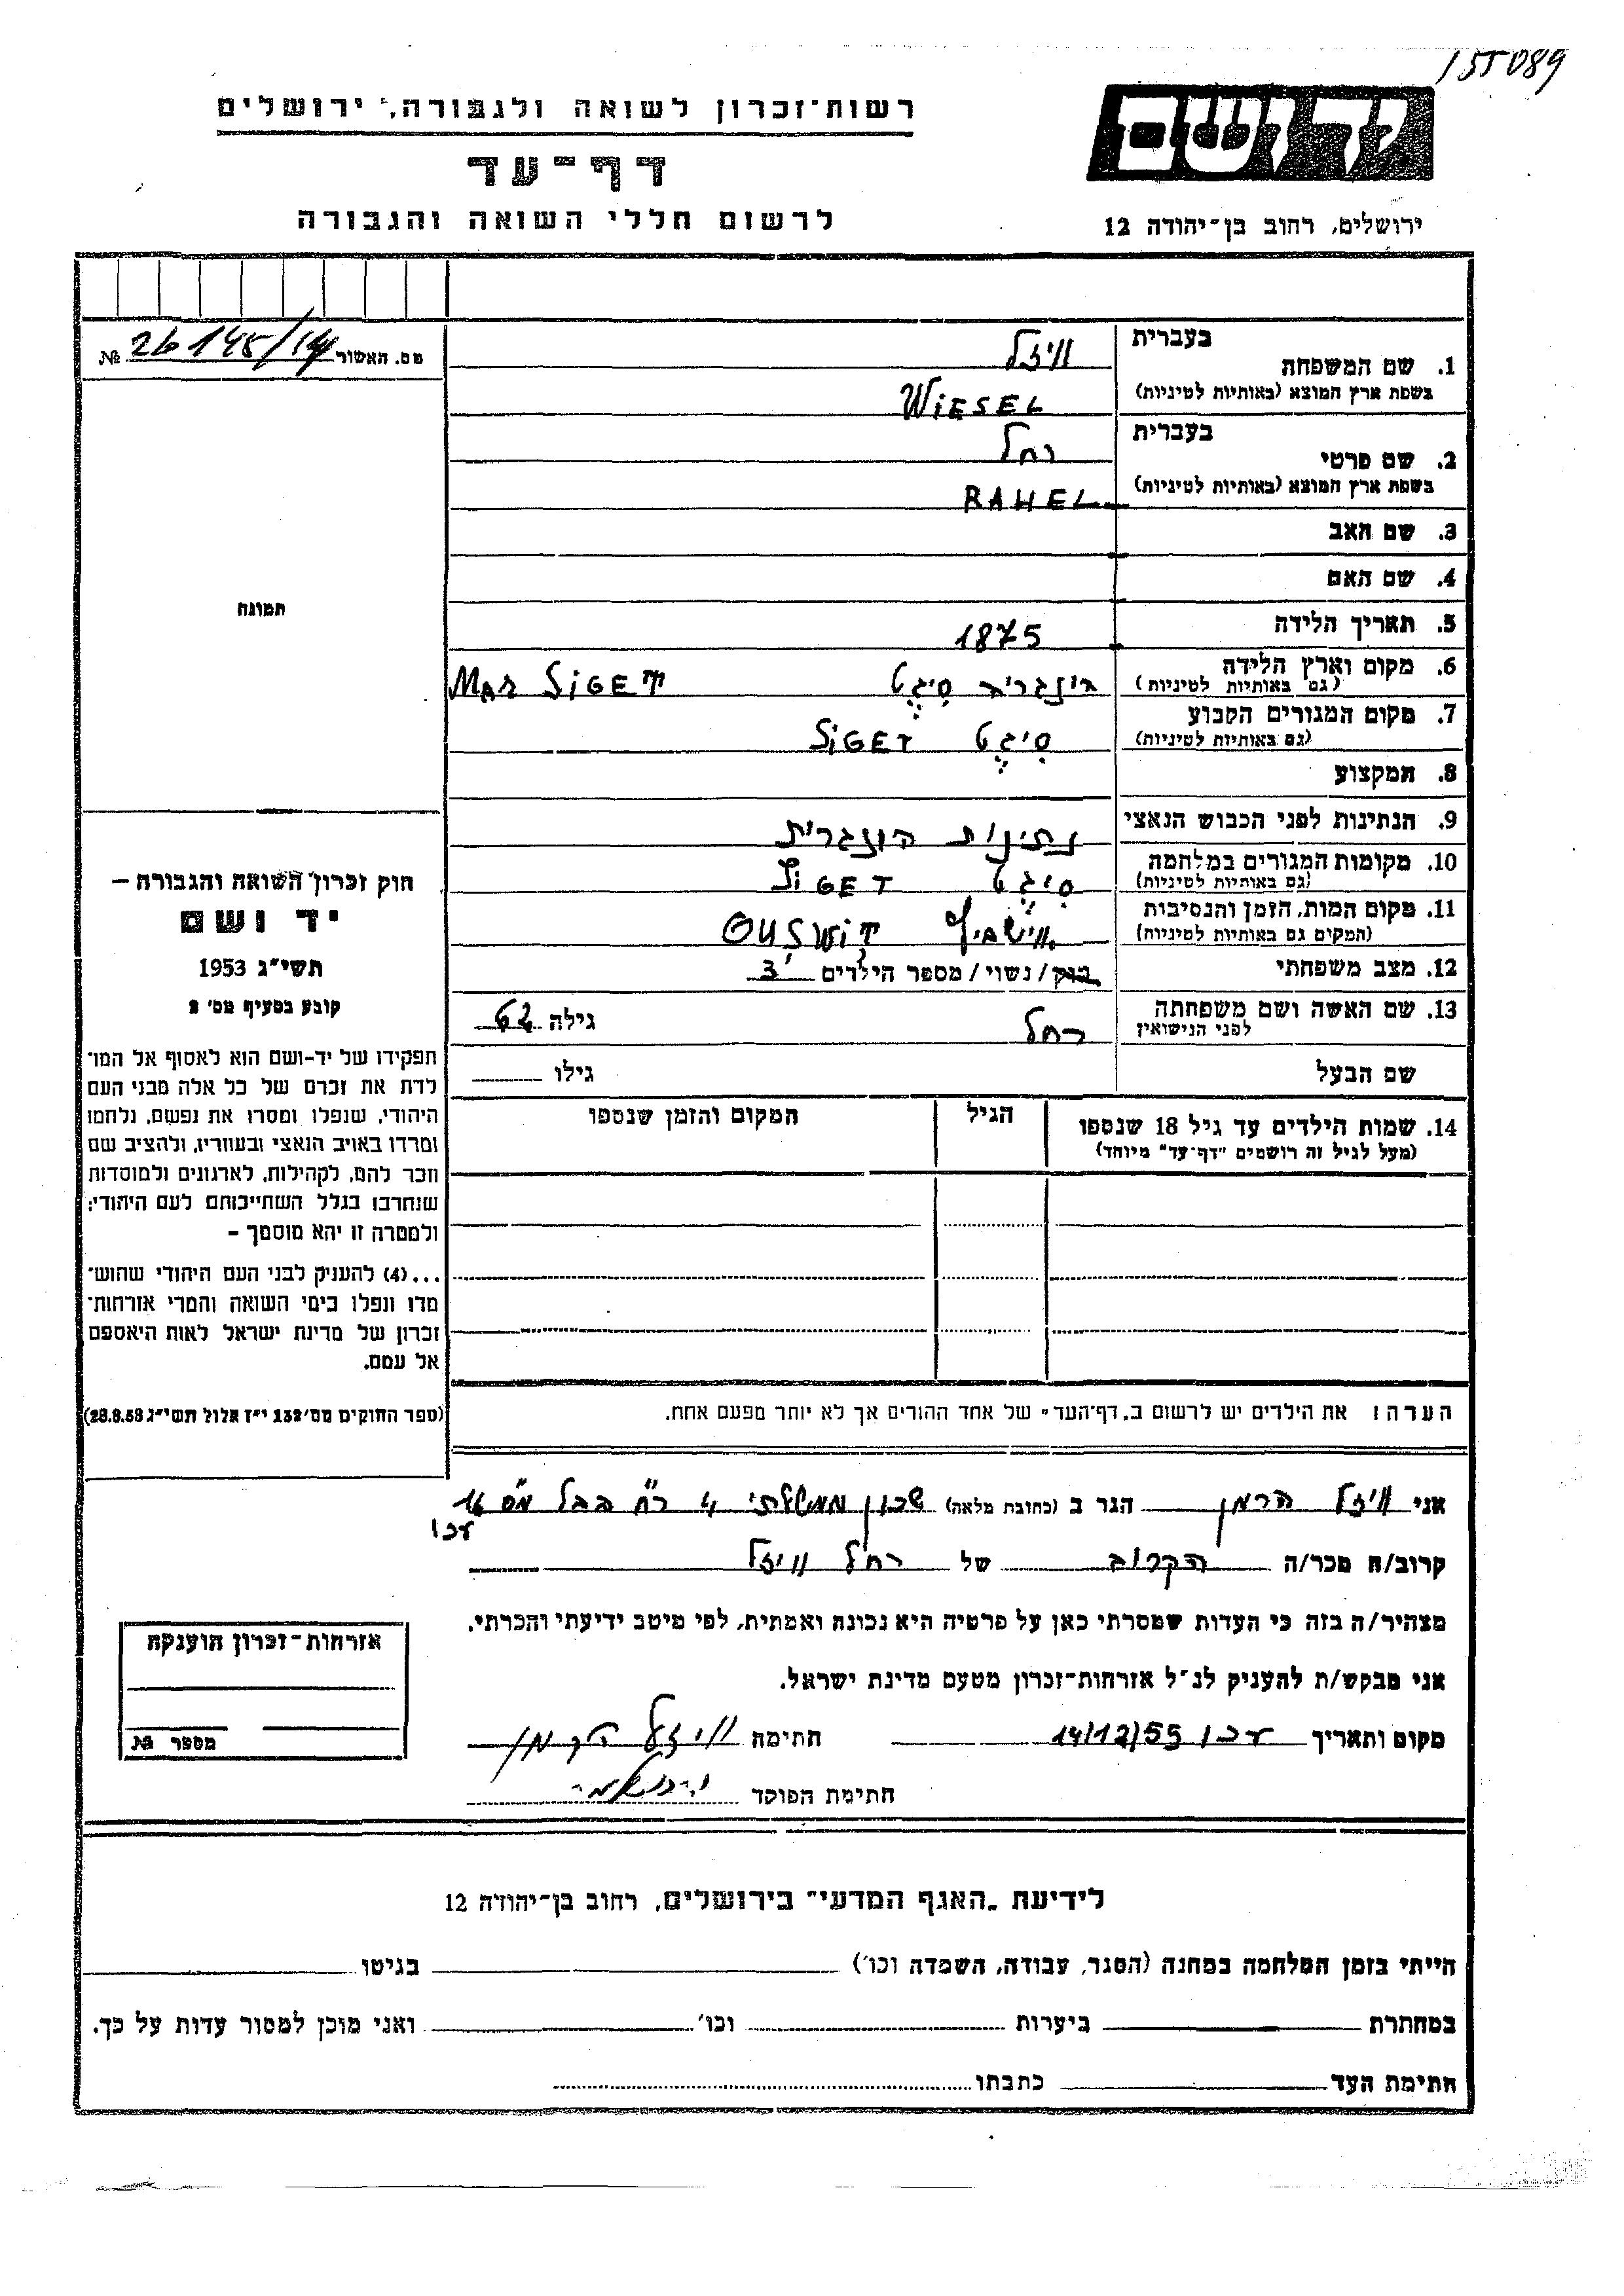 155089
רשות־זכרון לשואה ולגבורה, ירושלים
ידושם
דף־עד
לרשום חללי השואה והגבורה
ירושלים, רחוב בן־יהודה 12
מס. האשור № 26145/144
בעברית
1. שם המשפחה וויזל
בשפת ארץ המוצא (באותיות לטיניות) WIESEL
בעברית
2. שם פרטי רחל
בשפת ארץ המוצא (באותיות לטיניות) RAHEL
3. שם האב
4. שם האם
תמונה
5. תאריך הלידה 1875
6. מקום וארץ הלידה הונגריה סיגט MAR SIGET
(גם באותיות לטיניות)
7. מקום המגורים הקבוע סיגט SIGET
(גם באותיות לטיניות)
8. המקצוע
9. הנתינות לפני הכבוש הנאצי נתינות הונגרית
10. מקומות המגורים במלחמה סיגט SIGET
(גם באותיות לטיניות)
11. מקום המות, הזמן והנסיבות OUSWIT
(המקום גם באותיות לטיניות)
12. מצב משפחתי רווק/נשוי/מספר הילדים 3
13. שם האשה ושם משפחתה רחל גילה 62
לפני הנישואין
שם הבעל גילו
14. שמות הילדים עד גיל 18 שנספו הגיל המקום והזמן שנספו
(מעל לגיל זה רושמים "דף־עד" מיוחד)
חוק זכרון השואה והגבורה –
יד ושם
תשי״ג 1953
קובע בסעיף מס' 2
תפקידו של יד-ושם הוא לאסוף אל המו־
לדת את זכרם של כל אלה מבני העם
היהודי, שנפלו ומסרו את נפשם, נלחמו
ומרדו באויב הנאצי ובעוזריו, ולהציב שם
וזכר להם, לקהילות, לארגונים ולמוסדות
שנחרבו בגלל השתייכותם לעם היהודי;
ולמטרה זו יהא מוסמך –
...(4) להעניק לבני העם היהודי שהוש־
מדו ונפלו בימי השואה והמרי אזרחות־
זכרון של מדינת ישראל לאות היאספם
אל עמם.
(ספר החוקים מס' 132 י״ז אלול תשי״ג 28.8.53)
הערה: את הילדים יש לרשום ב„דף־העד" של אחד ההורים אך לא יותר מפעם אחת.
אני וויזל הרמן הגר ב (כתובת מלאה) שכון ממשלתי 4 רח' בבל מס 16
עכו
קרוב/ה מכר/ה הקרוב של רחל וויזל
מצהיר/ה בזה כי העדות שמסרתי כאן על פרטיה היא נכונה ואמתית, לפי מיטב ידיעתי והכרתי.
אני מבקש/ת להעניק לנ״ל אזרחות־זכרון מטעם מדינת ישראל.
מקום ותאריך עכו 14/12/55 חתימה וויזל הרמן
חתימת הפוקד
אזרחות־זכרון הוענקה
מספר №
לידיעת „האגף המדעי" בירושלים, רחוב בן־יהודה 12
הייתי בזמן המלחמה במחנה (הסגר, עבודה, השמדה וכו') בגיטו
במחתרת ביערות וכו' ואני מוכן למסור עדות על כך.
חתימת העד כתבתו